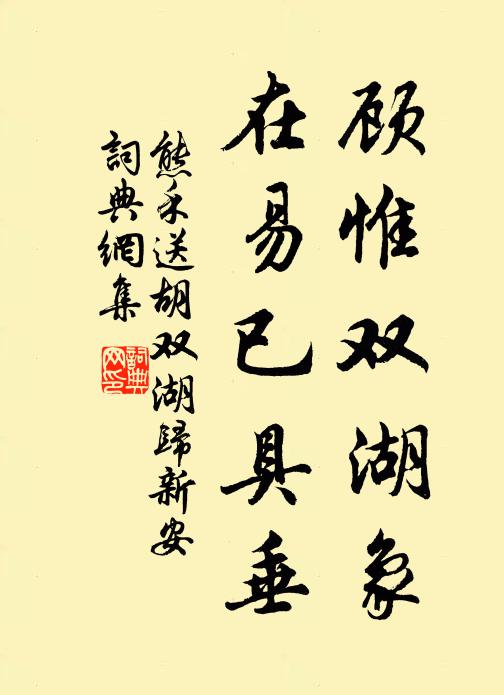 顾惟双湖象
在易已具垂
熊禾送胡双湖歸新安
詞典網集
詞典
网印